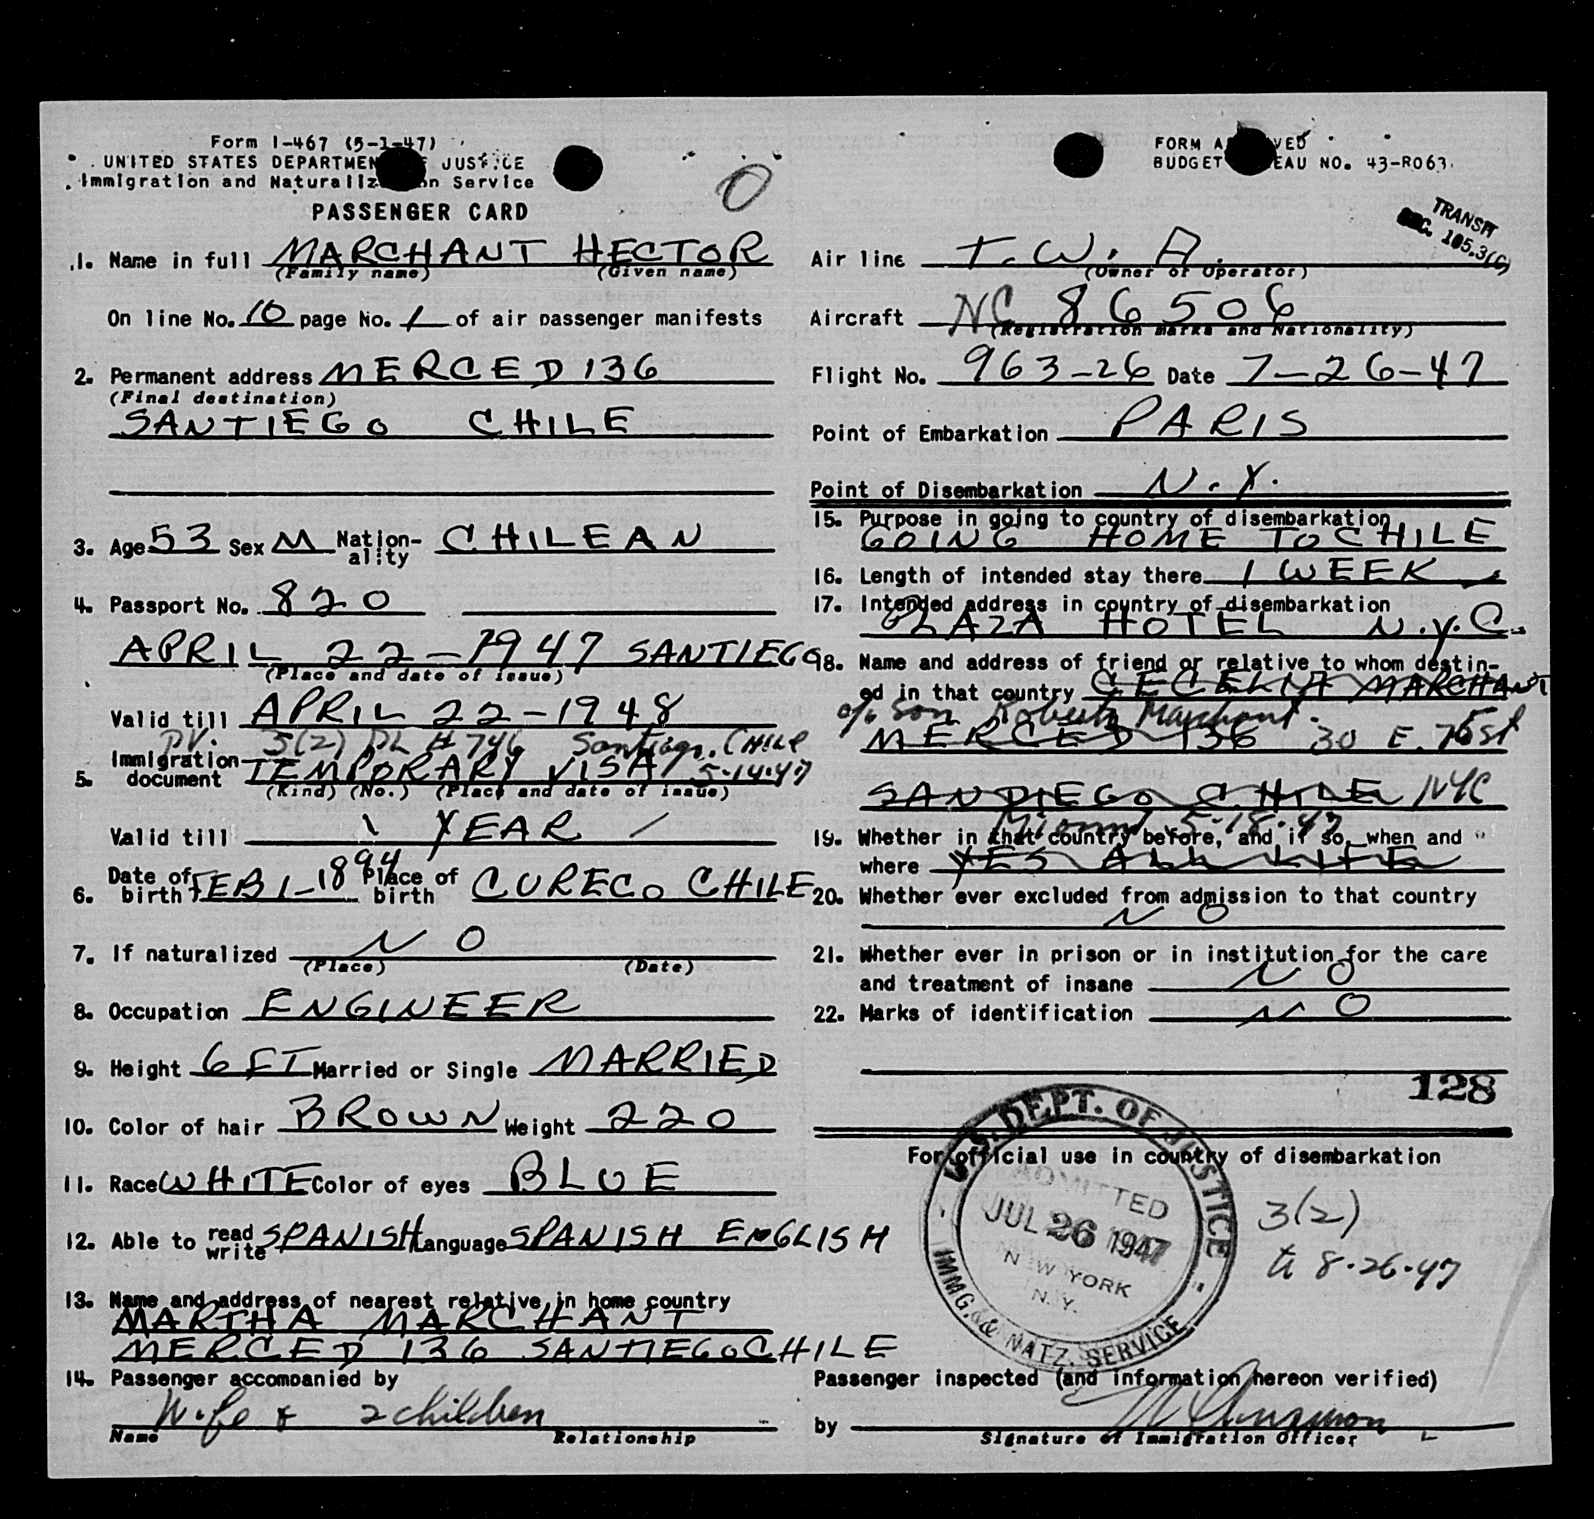 Form I-467 (5-1-47)
UNITED STATES DEPARTMENT OF JUSTICE
Immigration and Naturalization Service
PASSENGER CARD
0
FORM APPROVED
BUDGET BUREAU NO. 43-R063.
TRANSIT
SEC. 105.3(c)
1. Name in full MARCHANT HECTOR
(Family name) (Given name)
On line No. 10 page No. 1 of air passenger manifests
2. Permanent address MERCED 136
(Final destination)
SANTIEGO CHILE
3. Age 53 Sex M Nation-ality CHILEAN
4. Passport No. 820
APRIL 22-1947 SANTIEGO
(Place and date of issue)
Valid till APRIL 22-1948
PV. 3(2) PL # 746 Santiago, CHILE
5. Immigration document TEMPORARY VISA 5-14-47
(Kind) (No.) (Place and date of issue)
Valid till 1 YEAR
6. Date of birth FEB 1-1894 Place of birth CURECO CHILE
7. If naturalized NO
(Place) (Date)
8. Occupation ENGINEER
9. Height 6 FT Married or Single MARRIED
10. Color of hair BROWN Weight 220
11. Race WHITE Color of eyes BLUE
12. Able to read write SPANISH Language SPANISH ENGLISH
13. Name and address of nearest relative in home country
MARTHA MARCHANT
MERCED 136 SANTIEGO CHILE
14. Passenger accompanied by
Wife & 2 children
Name Relationship
Air line T.W.A.
(Owner or Operator)
Aircraft NC 86506
(Registration marks and Nationality)
Flight No. 963-26 Date 7-26-47
Point of Embarkation PARIS
Point of Disembarkation N.Y.
15. Purpose in going to country of disembarkation
GOING HOME TO CHILE
16. Length of intended stay there 1 WEEK
17. Intended address in country of disembarkation
PLAZA HOTEL N.Y.C.
18. Name and address of friend or relative to whom destin-
ed in that country CECELIA MARCHANT
c/o Son Roberto Marchant.
MERCED 136 30 E. 76 St
SANDIEGO CHILE NYC
Miami 5-18-47
19. Whether in that country before, and if so, when and
where YES ALL LIFE
20. Whether ever excluded from admission to that country
NO
21. Whether ever in prison or in institution for the care
and treatment of insane NO
22. Marks of identification NO
128
For official use in country of disembarkation
U.S. DEPT. OF JUSTICE
ADMITTED
JUL 26 1947
NEW YORK
N.Y.
IMMG. & NATZ. SERVICE
3(2)
to 8-26-47
Passenger inspected (and information hereon verified)
by
Signature of Immigration Officer